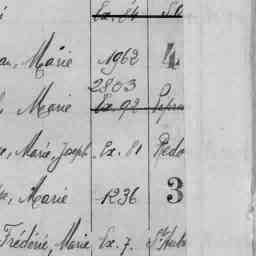 Ex. 84
Marie 1962
2803
Marie Ex. 92
Marie, Joseph Ex. 81 Redo
Marie 1236 3
Frédéric, Marie Ex. 7. St Aub